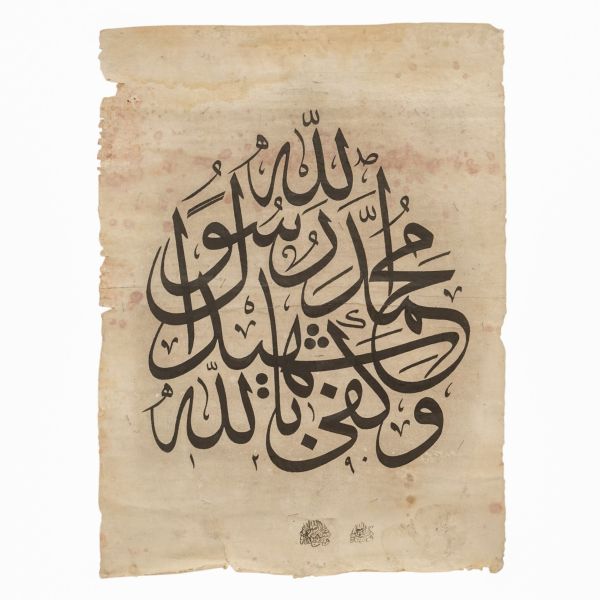 وكفى بالله
شهيدا
محمد رسول
الله
١٢٩٠